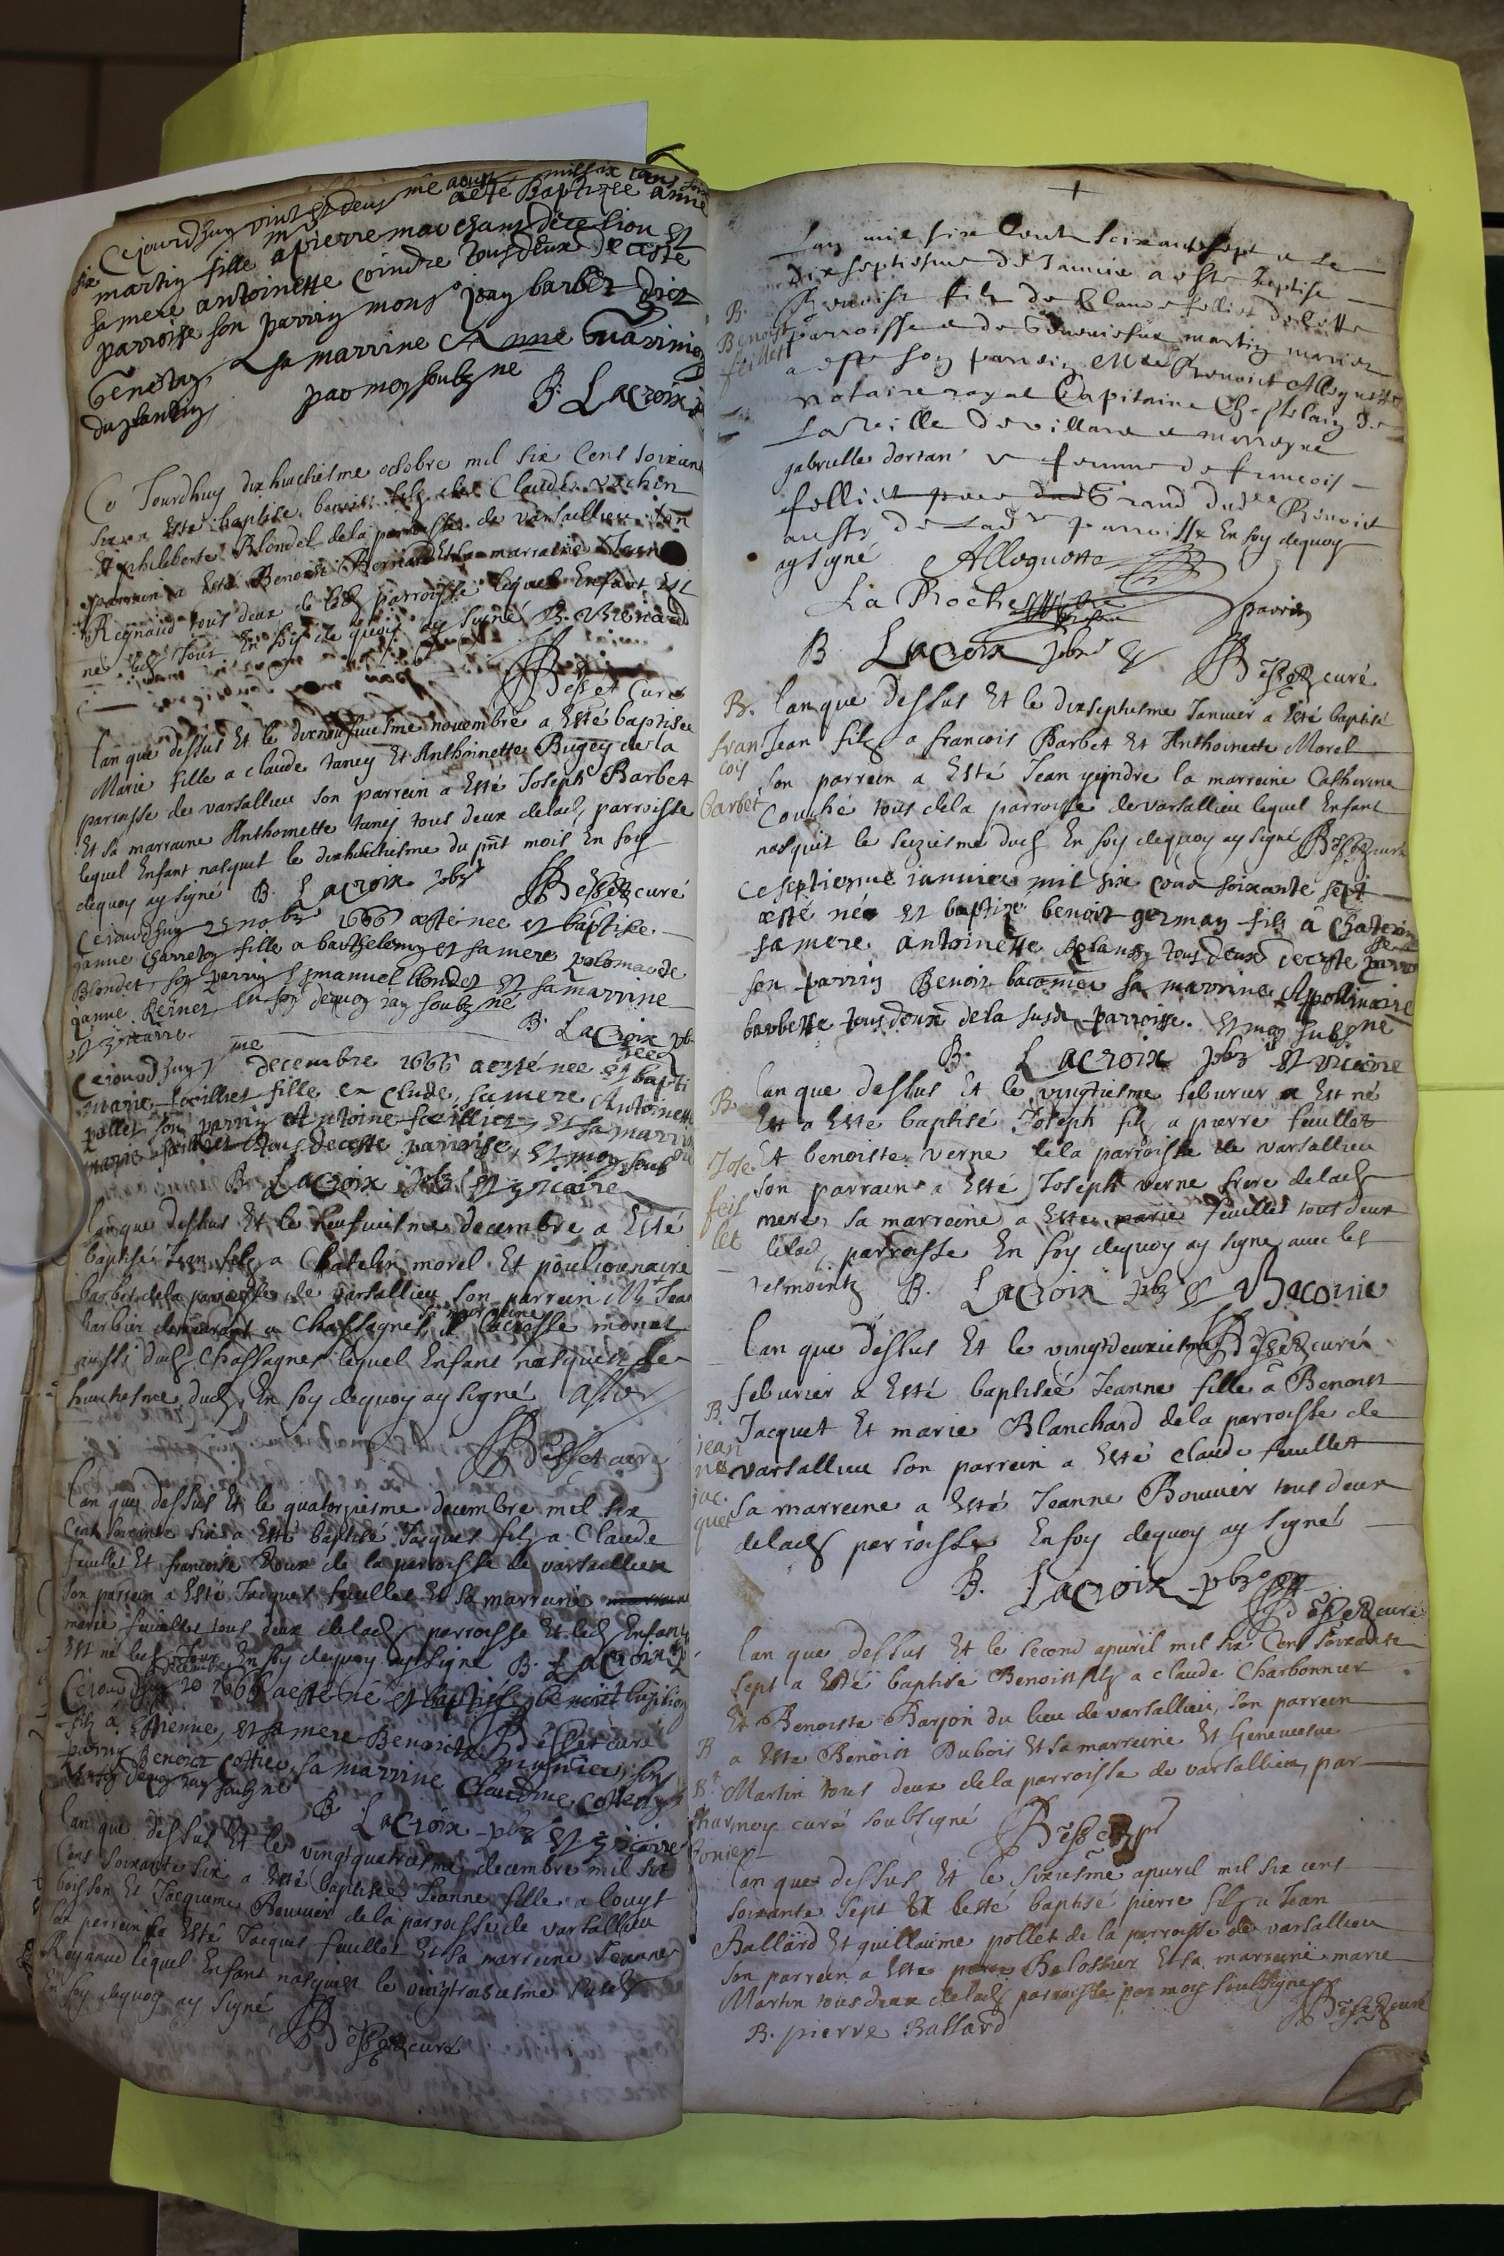 Cejourdhuy vint et deux me aoust mil six cens soix
six a esté Baptizee anne
martin fille a pierre marchant de ce lieu et
sa mere antoinette coindre tous deux de ceste
parroisse son parrin mons r jean barbet dict
Genestay, La marrine Anne
par moy soubzne
B. Lacroix
Ce Jourdhuy dixhuictiesme octobre mil six Cens soixan
six a Esté baptisé benoist filz de Claude vachon
Et philiberte Blondel de la parroisse de varsallieu son
parrain a Esté Benoist Bernard Et sa marraine Jean
Regnaud tous deux de lad parroisse lequel Enfant est
né led jour En foy de quoy ay signé B.
Besset Curé
lan que dessus Et le dixneufuiesme nouembre a Esté baptisée
Marie fille a claude taney Et Anthoinette Bugey de la
parroisse de varsallieu son parrein a Esté Joseph Barbet
Et sa marraine Anthoinette taney tous deux de lad parroisse
lequel Enfant nasquit le dixhuictiesme du pnt mois En foy
dequoy ay signé B. Lacroix pbr Besset curé
Cejourdhuy 25 nobr 1666 a esté nee et baptisee
janne Charreton fille a barthelemy et sa mere polomande
Blondet, son parrin Emanuel blondet et sa marrine
janne Rernet En foy dequoy jay soubz né
et vicaire B. Lacroix pbr
Cejourdhuy me decembre 1666 a esté nee et bapti
marie feuillet fille a Claude, sa mere Antoinette
pollet son parrin Antoine feuillet et sa marrin
marie feuillet tous de ceste parroisse, et moy soub
B. Lacroix pbr et vicaire
lan que dessus Et le Neufuiesme decembre a Esté
baptisé Jean filz a Chatelin morel Et poulionnaire
barbet de la parroisse de varsallieu son parrein Mr Jean
barbier demeurant a Chassagnes sa marraine lacroisse monet
aussi dud Chassagnes lequel Enfant nasquit le
huictiesme dud En foy dequoy ay signé
Besset curé
lan que dessus Et le quatorziesme decembre mil six
Cent soixante six a Esté baptisé Jacques filz a Claude
feuillet Et francoise Roux de la parroisse de varsallieu
son parrein a Esté Jacques feuillet Et sa marreine
marie feuillet tous deux de lad parroisse Et led Enfant
Est né led Jour En foy dequoy ay signé B. Lacroix
Cejourdhuy 20 decembre 1666 a esté né et baptisé benoist
filz a Estienne, et sa mere Benoiste munier, son
Besset curé
parrin Benoist Cottier sa marrine Claudine Cottier
En foy dequoy jay soubzne
B. Lacroix pbr et vicaire
lan que dessus Et le vingtquatriesme decembre mil six
Cens soixante six a Esté baptisée Jeanne fille a louys
boisson Et Jacqueme Bouuier de la parroisse de varsallieu
son perrein a Esté Jacques feuillet Et sa marreine Jeanne
Reynaud lequel Enfant nasquit le vingttroisiesme
En foy dequoy ay signé
Besset curé
+
Lan mil six Cent soixante sept a Le
dix septiesme de Januier a este baptise
B. Benoist filz de Claude felliet de cette
Benoist parroisse e de Geneuiefue martin mariez
feillet
a este son parrein Me Benoist Alloguette
notaire royal Capitaine Chastelain de
La Ville de villars e marreyne
gabrielle dortan femme de francois
felliet Grand dud Benoist
aussy de lad parroisse En foy dequoy
ay signé Alloguette
La Roche parrin
B. Lacroix pbr Besset curé
B. lan que dessus Et le dixseptiesme Januier a Esté baptisé
fran Jean filz a francois Barbet Et Anthoinette Morel
cois son parrein a Esté Jean yeindre la marreine Catherine
barbet Couché tous de la parroisse de varsallieu lequel Enfant
nasquit le seiziesme dud En foy dequoy ay signé Besset curé
Ce septienme januier mil six cens soixante sept
a esté né et baptizé benoit german filz a Chaterin
sa mere antoinette tous deux de ceste parro
son parrin Benoit baconier sa marrine Appollinaire
barbette tous deux de la susd parroisse. et moy subz né
B. Lacroix pbr et vicaire
B. lan que dessus Et le vingtiesme feburier a Est né
Et a Esté baptisé Joseph filz a pierre feuillet
Jose Et benoiste verne de la parroisse de varsallieu
feil son parrain a Esté Joseph verne frere de lad
let mere, sa marreine a Esté marie feuillet tous deux
de lad parroisse En foy dequoy ay signé auec les
tesmointz B. Lacroix pbr Baconie
Besset curé
lan que dessus Et le vingtdeuxiesme
feburier a Esté baptisée Jeanne fille a Benoist
B. Jacquet Et marie Blanchard de la parroisse de
jean varsallieu son parrein a Esté claude feuillett
ne
jac sa marreine a Esté Jeanne Bouuier tous deux
quet
de lad parroisse En foy dequoy ay signé
B. Lacroix pbr Besset curé
lan que dessus Et le second apuril mil six Cens soixante
sept a Esté baptisé Benoist filz a claude Charbonnier
Et Benoiste Barjon du lieu de varsallieu, son parrein
B a Esté Benoist Dubois Et sa marreine Et Geneuiesue
Bt Martin tous deux de la parroisse de varsallieu, par
char moy curé soubsigné Besset
bonier
lan que dessus Et le sixiesme apuril mil six cens
soixante sept Et a esté baptisé pierre filz a Jean
Ballard Et guillaume pollet de la parroisse de varsallieu
son parrein a Esté Et sa marreine marie
Martin tous deux de lad parroisse par moy soubsigné
B. pierre Ballard Besset curé